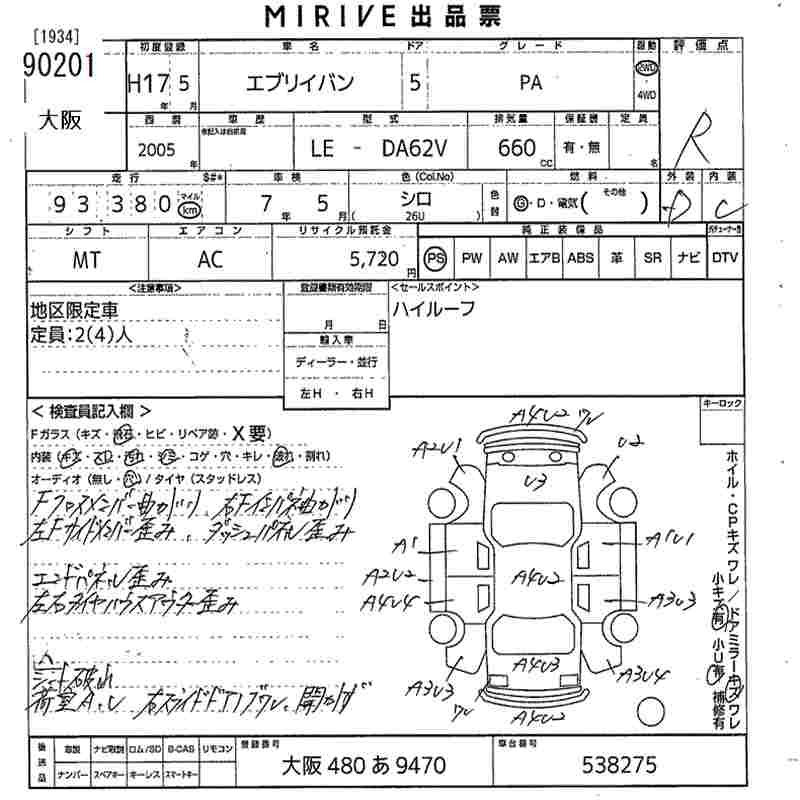 MIRIVE 出品票
[1934]
90201
大阪
初度登録 車名 ドア グレード 駆動 評価点
H17 5 エブリイバン 5 PA 2WD
年 月 4WD
R
西暦 車歴 型式 排気量 保証書 定員
2005 LE - DA62V 660 有・無
年 CC 名
走行 S#* 車検 色(Col.No) 燃料 外装 内装
93380 マイル km 7年 5月 シロ 色替 G・D・電気(その他 ) D C
( 26U )
シフト エアコン リサイクル預託金 純正装備品
MT AC 5,720円 PS PW AW エアB ABS 革 SR ナビ DTV
<注意事項> 登録書類有効期限 <セールスポイント>
地区限定車 ハイルーフ
定員:2(4)人
月 日
輸入車
ディーラー・並行
左H ・ 右H
キーロック
<検査員記入欄>
Fガラス(キズ・飛石・ヒビ・リペア跡・X要)
内装(キズ・スレ・汚れ・シミ・コゲ・穴・キレ・破れ・割れ)
オーディオ(無し・穴)/タイヤ(スタッドレス)
Fクロスメンバー曲がり 右Fインパネ曲がり
左Fサイドメンバー歪み、ダッシュパネル歪み
エンドパネル歪み
左右タイヤハウスアウター歪み
シート破れ
荷室A、U 右スライドドア
A4U2 ワレ
A2U1
U2
U3
A1
A2U2
A4U4
A4U2
A1U1
A3U3
A4U3
A3U3
A3U4
ワレ
A4U2
ホイル・CPキズ ワレ/ドアミラーキズ ワレ
小キズ有 小U有 補修有
後送品 取説 ナビ取説 ロム/SD B-CAS リモコン 登録番号 車台番号
ナンバー スペアキー キーレス スマートキー 大阪 480 あ 9470 538275